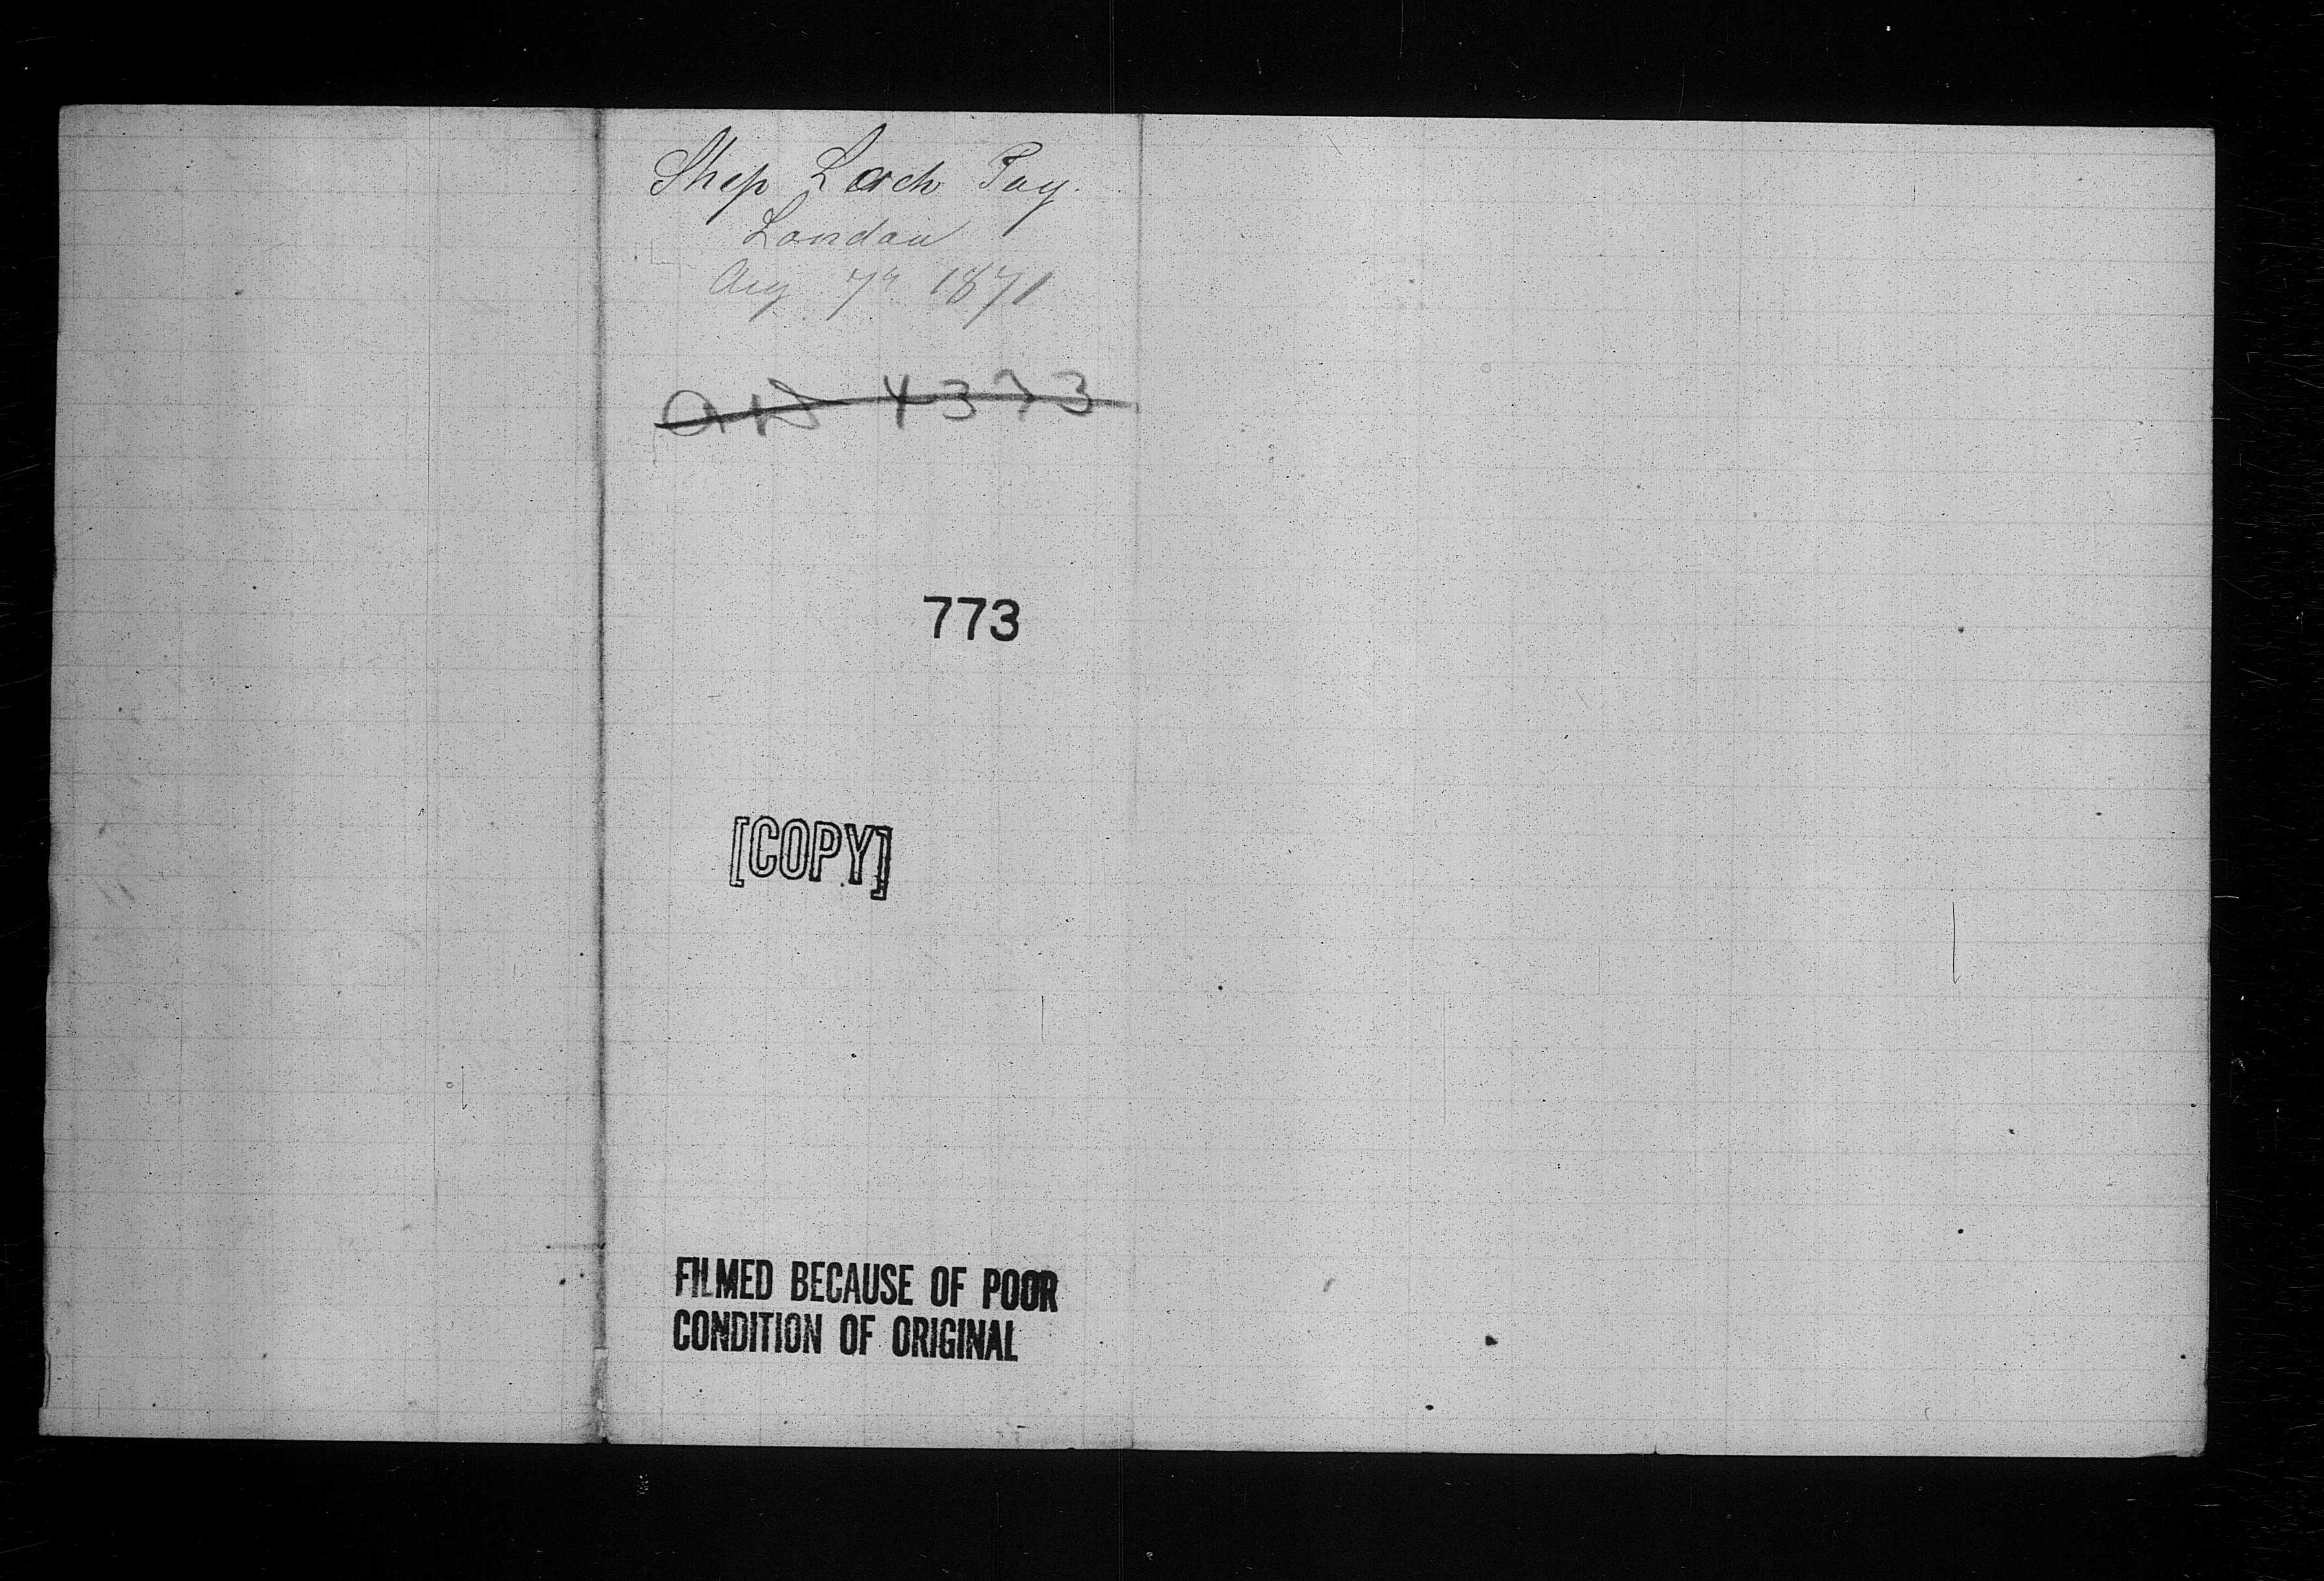 Ship Loch Tay.
London
Aug 7th 1871
4373
773
[COPY]
FILMED BECAUSE OF POOR
CONDITION OF ORIGINAL